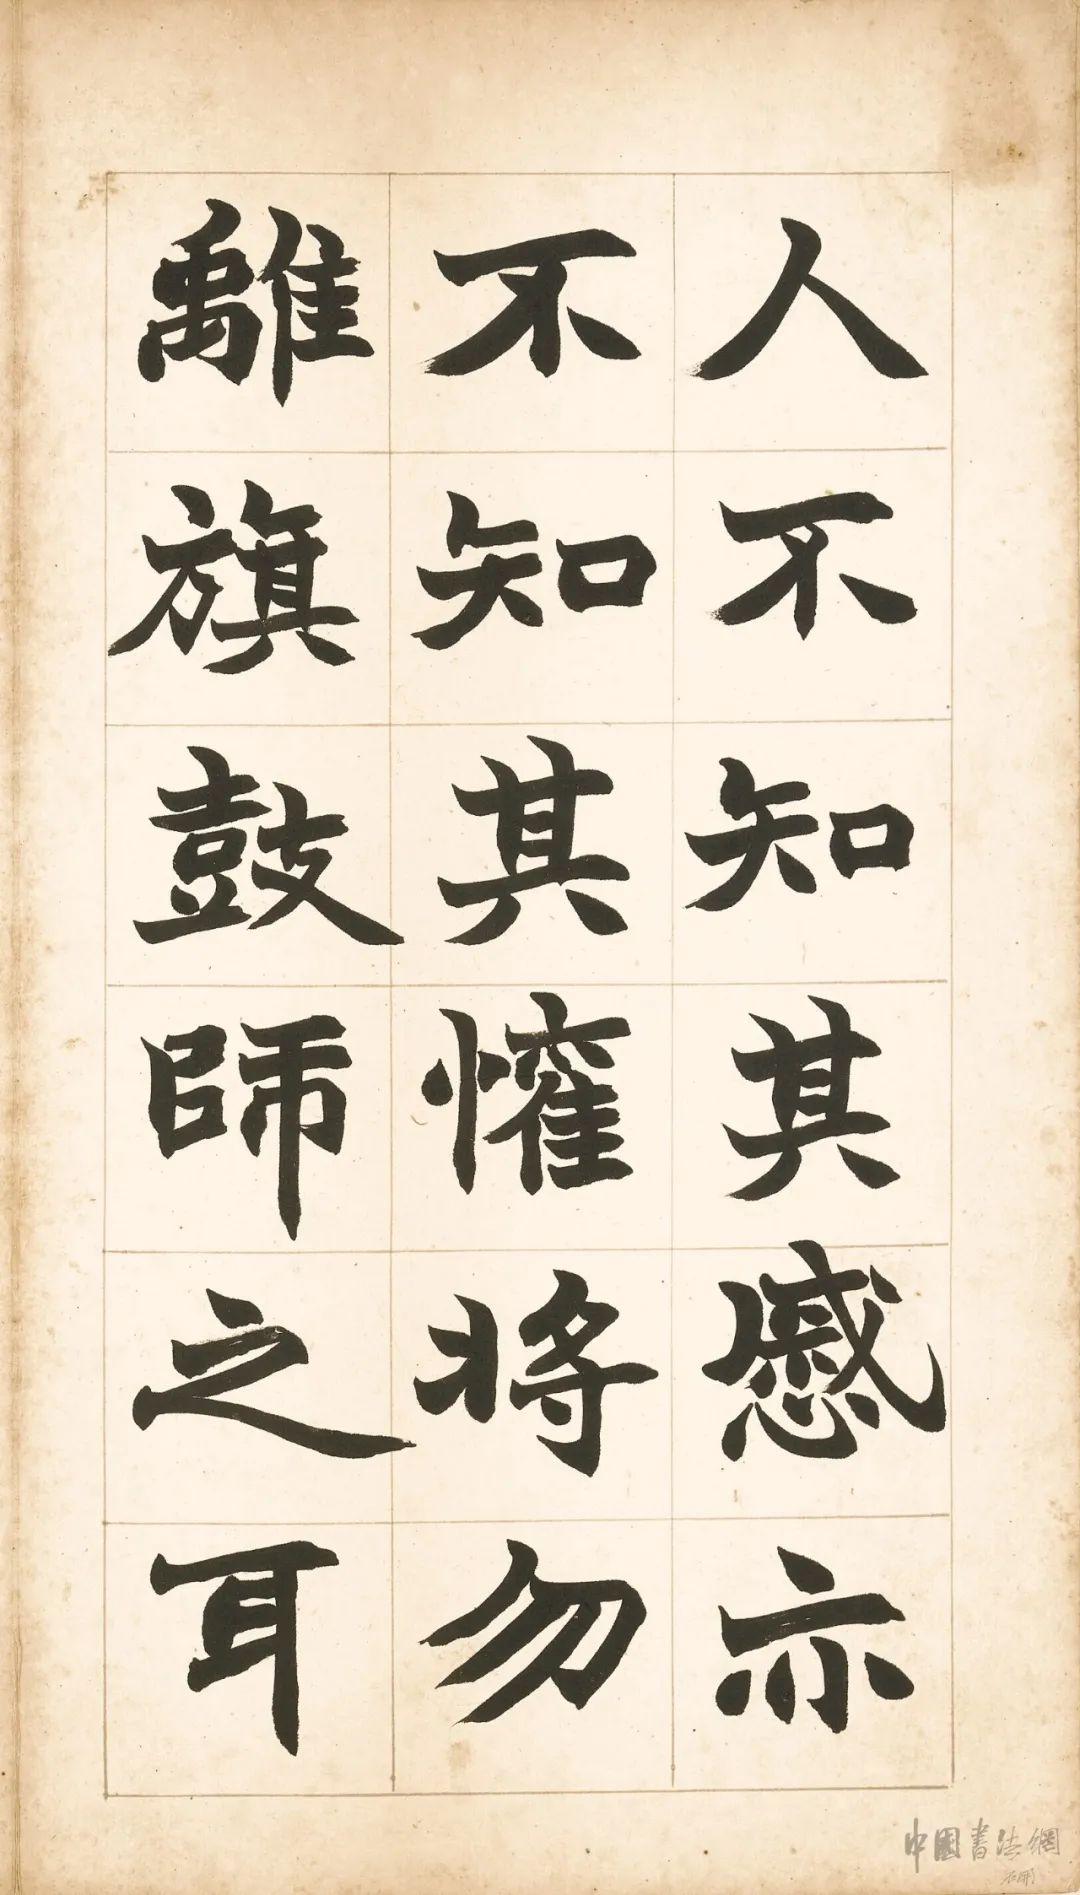 人不知其慼亦
不知其懽將勿
離旗鼓師之耳
中國書法網